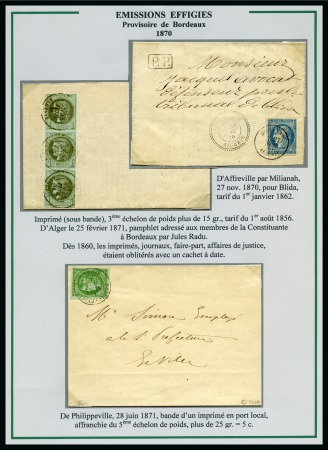 EMISSIONS EFFIGIES
Provisoire de Bordeaux
1870
Monsieur
Jacques avocat
Défenseur près le
tribunal de Blida
P.P.
D'Affreville par Milianah,
27 nov. 1870, pour Blida,
tarif du 1er janvier 1862.
Imprimé (sous bande), 3ème échelon de poids plus de 15 gr., tarif du 1er août 1856.
D'Alger le 25 février 1871, pamphlet adressé aux membres de la Constituante
à Bordeaux par Jules Radu.
Dès 1860, les imprimés, journaux, faire-part, affaires de justice,
étaient oblitérés avec un cachet à date.
Mr Simon Employé
a la Préfecture
En Ville
De Philippeville, 28 juin 1871, bande d'un imprimé en port local,
affranchie du 5ème échelon de poids, plus de 25 gr. = 5 c.